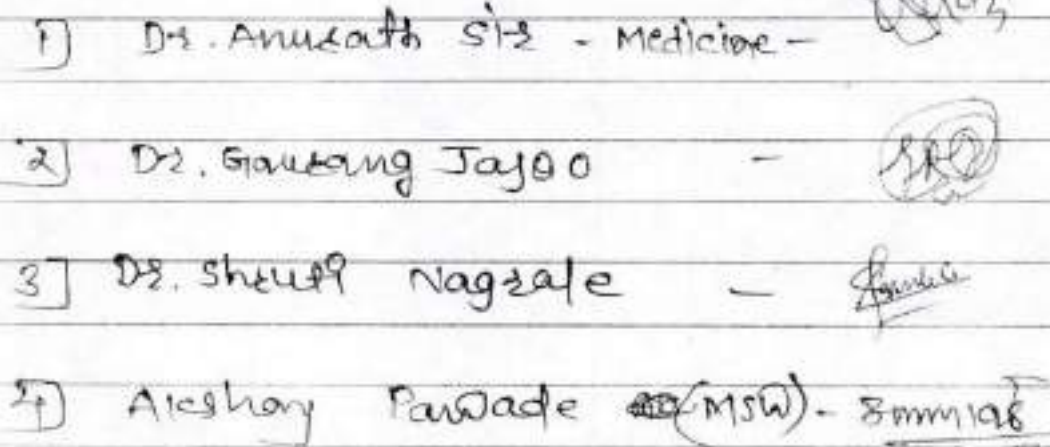 1] Dr. Anurath Sir - Medicine -
2] Dr. Gaurang Jajoo -
3] Dr. Shruti Nagrale -
4] Akshay Pawade (MSW) -